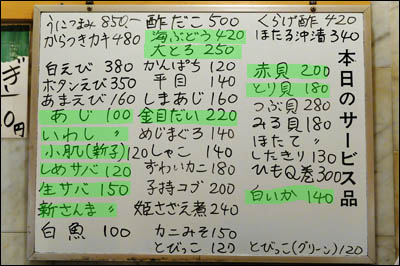 本日のサービス品
うにつまみ 850.-
からつきカキ 480
白えび 380
ボタンえび 350
あまえび 160
あじ 100
いわし 〃
小肌(新子) 120
しめサバ 120
生サバ 150
新さんま 〃
白魚 100
酢だこ 500
海ぶどう 420
大とろ 250
かんぱち 120
平目 140
しまあじ 160
金目だい 220
めじまぐろ 140
しゃこ 140
ずわいカニ 180
子持コブ 200
姫さざえ煮 240
カニみそ 150
とびっこ 120
くらげ酢 420
ほたる沖漬 340
赤貝 200
とり貝 180
つぶ貝 280
みる貝 180
ほたて 〃
したきり 130
ひもQ巻 300
白いか 140
とびっこ(グリーン) 120
ぎ
0円